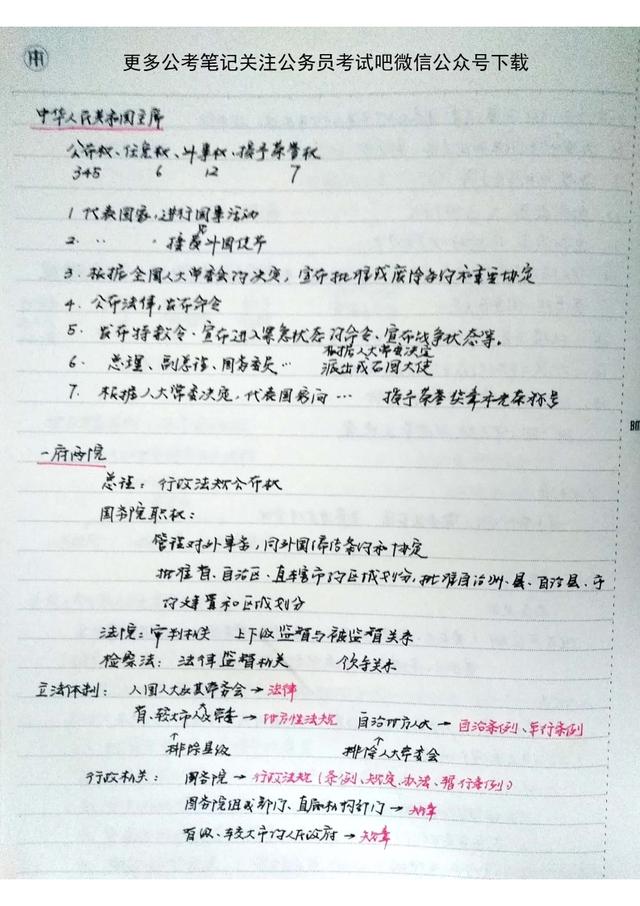 更多公考笔记关注公务员考试吧微信公众号下载
中华人民共和国主席
公布权、任免权、外事权、授予荣誉权
345 6 12 7
1. 代表国家,进行国事活动
2. 〃 〃 接受外国使节
3. 根据全国人大常委会的决定,宣布批准或废除条约和重要协定
4. 公布法律,发布命令
5. 发布特赦令、宣布进入紧急状态的命令、宣布战争状态等。
根据人大常委决定
6. 总理、副总理、国务委员… 派出或召回大使
7. 根据人大常委决定,代表国家向… 授予荣誉奖章和光荣称号
一府两院
总理:行政法规公布权
国务院职权:
管理对外事务,同外国缔结条约和协定
批准省、自治区、直辖市的区域划分,批准自治州、县、自治县、市
的建置和区域划分
法院:审判机关 上下级监督与被监督关系
检察法:法律监督机关 领导关系
立法体制:全国人大及其常委会→法律
省、较大市人大常委→地方性法规 自治地方人大→自治条例、单行条例
↑排除县级 ↑排除人大常委会
行政机关:国务院→行政法规(条例、规定、办法、暂行条例)
国务院组成部门、直属机构部门→规章
省级、较大市的人民政府→规章